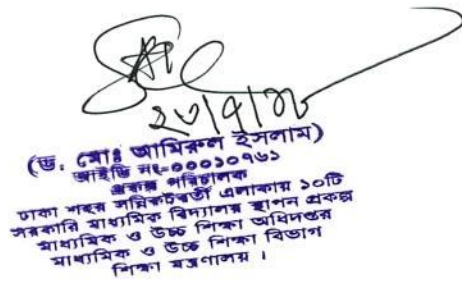 ২৩/৭/২৮
(ড. মোঃ আমিরুল ইসলাম)
আইডি নং-০০০১০৭৬১
প্রকল্প পরিচালক
ঢাকা শহর সন্নিকটবর্তী এলাকায় ১০টি
সরকারি মাধ্যমিক বিদ্যালয় স্থাপন প্রকল্প
মাধ্যমিক ও উচ্চ শিক্ষা অধিদপ্তর
মাধ্যমিক ও উচ্চ শিক্ষা বিভাগ
শিক্ষা মন্ত্রণালয় ।